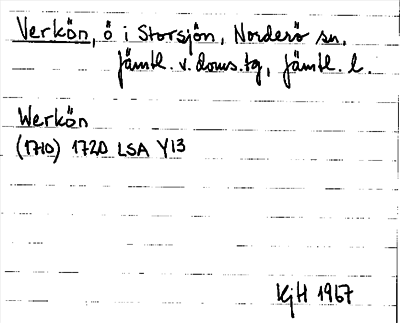 Verkön, ö i Storsjön, Norderö sn.
Jämtl. v. doms. tg, Jämtl. l.
Werkön
(1710) 1720 LSA Y13
KjH 1967